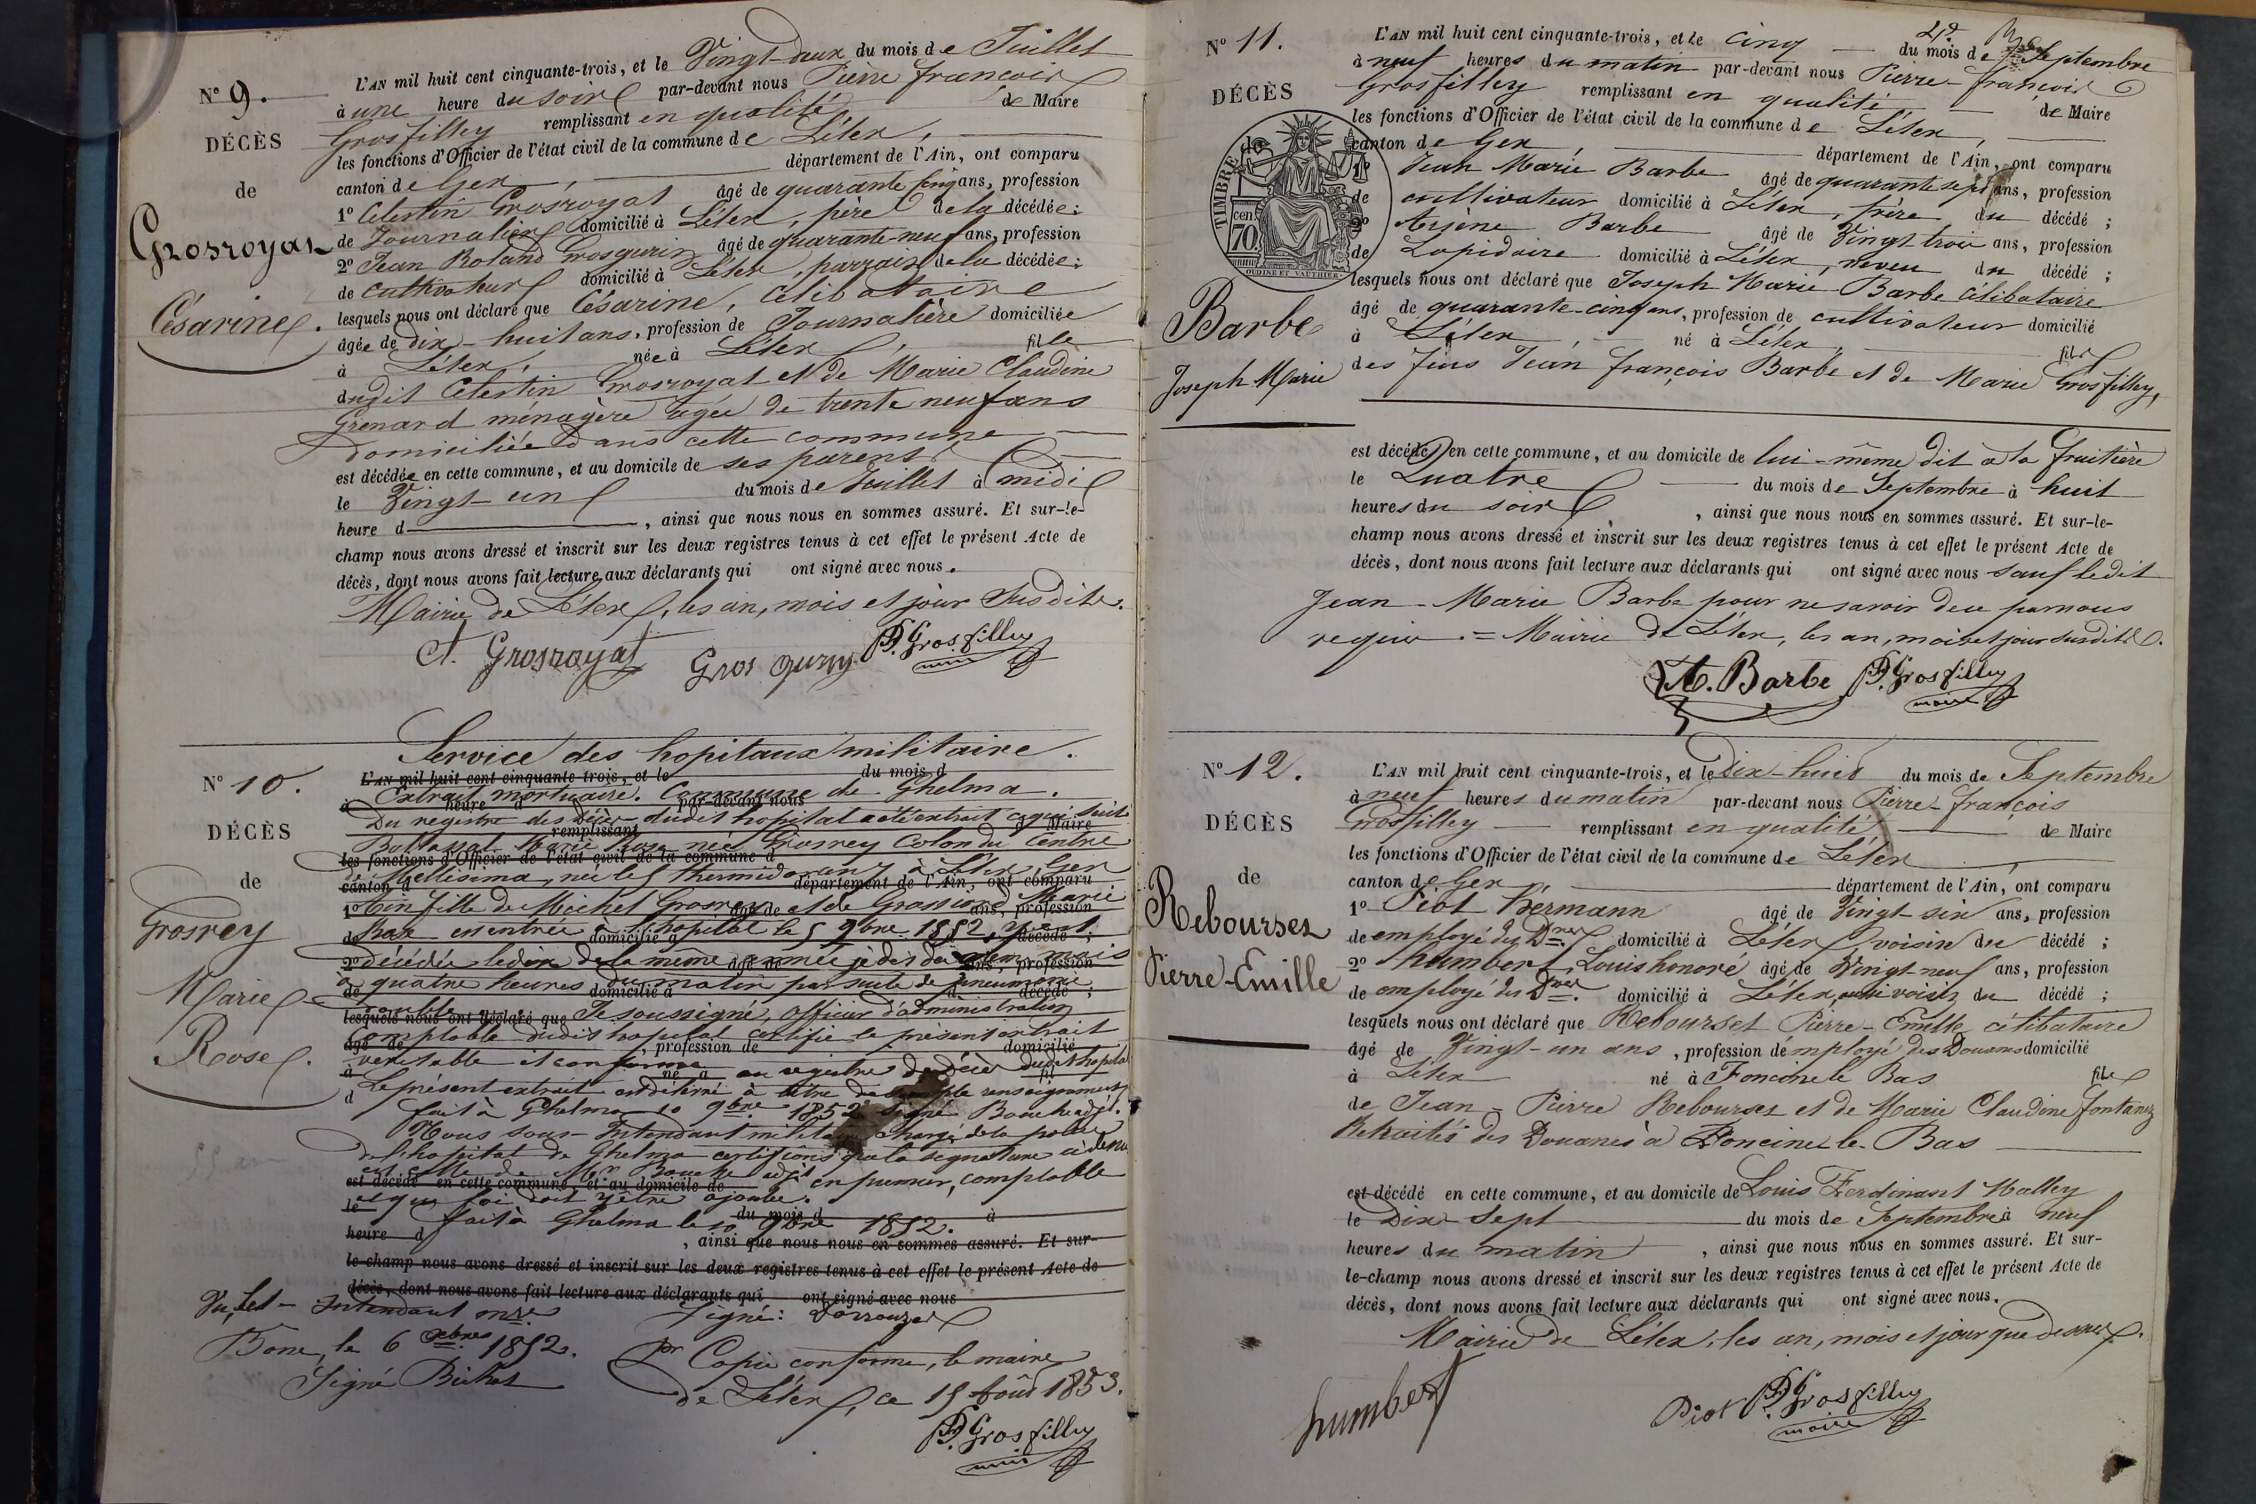 N° 9.
DÉCÈS
de
Grosroyat
Césarine.
L'AN mil huit cent cinquante-trois, et le Vingt-deux du mois de Juillet
à une heure du soir par-devant nous Pierre françois
Grosfilley remplissant en qualité de Maire
les fonctions d'Officier de l'état civil de la commune de Lélex,
canton de Gex, département de l'Ain, ont comparu
1° Célestin Grosroyat âgé de quarante cinq ans, profession
de Journalier domicilié à Lélex, père de la décédée;
2° Jean Roland Grosgurin âgé de quarante-neuf ans, profession
de cultivateur domicilié à Lélex, parrain de la décédée;
lesquels nous ont déclaré que Césarine, célibataire
âgée de dix-huit ans, profession de Journalière domiciliée
à Lélex, née à Lélex, fille
dudit Célestin Grosroyat et de Marie Claudine
Grenard ménagère âgée de trente neuf ans
domiciliée dans cette commune
est décédée en cette commune, et au domicile de ses parents
le Vingt-un du mois de Juillet à midi
heure d , ainsi que nous nous en sommes assuré. Et sur-le-
champ nous avons dressé et inscrit sur les deux registres tenus à cet effet le présent Acte de
décès, dont nous avons fait lecture aux déclarants qui ont signé avec nous.
Mairie de Lélex, les an, mois et jour susdits.
Ct. Grosroyat Gros gurin P.F. Grosfilley
maire
N° 10.
DÉCÈS
de
Grosrey
Marie
Rose.
Service des hopitaux militaire.
L'AN mil huit cent cinquante-trois, et le du mois d
Extrait mortuaire. Commune de Ghelma.
à heure d par-devant nous
Du registre des décès dudit hopital a été extrait ce qui suit
remplissant Maire
Marie Rose née Grosrey Colon du Centre
les fonctions d'Officier de l'état civil de la commune d
de Mellisima, née le 5 thermidor an 7 à Lélex, Gex
canton d département de l'Ain, ont comparu
Ain fille de Michel Grosrey et de Grossiord Marie
1° âgé de ans, profession
est entrée à l'hopital le 5 9bre 1852, y est
de domicilié à décédé;
décédée le dix de la même année
2° âgé de ans, profession
à quatre heures du matin par suite de pneumonie
de domicilié à d décédé;
double. Je soussigné, officier d'administration
lesquels nous ont déclaré que
comptable dudit hopital certifie le présent extrait
âgé de , profession de domicilié
véritable et conforme au registre de décès dudit hopital
à né à fil
Le présent extrait délivré à titre de simple renseignement
d
fait à Ghelma 10 9bre 1852 signé Bouche adjt.
Nous sous-Intendant militaire chargé de la police
de l'hopital de Ghelma certifions que la signature
est celle de Mr Bouche adjt en premier, comptable
est décédé en cette commune, et au domicile de
et que foi doit y être ajoutée.
le du mois d à
fait à Ghelma le 10 9bre 1852.
heure d , ainsi que nous nous en sommes assuré. Et sur-
le-champ nous avons dressé et inscrit sur les deux registres tenus à cet effet le présent Acte de
décès, dont nous avons fait lecture aux déclarants qui ont signé avec nous
Vu, Intendant mre
Signé:
Bone, le 6 1852.
Signé
Pr Copie conforme, le maire
de Lélex, ce 15 Août 1853.
P.F. Grosfilley
maire
N° 11.
DÉCÈS
TIMBRE de
70 cen.
OUDINÉ ET VAUTHIER
Barbe
Joseph Marie
L'AN mil huit cent cinquante-trois, et le cinq du mois de Septembre
à neuf heures du matin par-devant nous Pierre-françois
Grosfilley remplissant en qualité de Maire
les fonctions d'Officier de l'état civil de la commune de Lélex,
canton de Gex, département de l'Ain, ont comparu
1° Jean Marie Barbe âgé de quarante sept ans, profession
de cultivateur domicilié à Lélex, frère du décédé;
2° Arsène Barbe âgé de Vingt trois ans, profession
de Lapidaire domicilié à Lélex, neveu du décédé;
lesquels nous ont déclaré que Joseph Marie Barbe célibataire
âgé de quarante-cinq ans, profession de cultivateur domicilié
à Lélex né à Lélex, fils
des feus Jean françois Barbe et de Marie Grosfilley,
est décédé en cette commune, et au domicile de lui-même dit à la fruitière
le Quatre du mois de Septembre à huit
heures du soir , ainsi que nous nous en sommes assuré. Et sur-le-
champ nous avons dressé et inscrit sur les deux registres tenus à cet effet le présent Acte de
décès, dont nous avons fait lecture aux déclarants qui ont signé avec nous sauf ledit
Jean-Marie Barbe pour ne savoir de ce par nous
requis. = Mairie de Lélex, les an, mois et jour susdits.
A. Barbe P.F. Grosfilley
maire
N° 12.
DÉCÈS
de
Rebourset
Pierre-Emille
L'AN mil huit cent cinquante-trois, et le Dix-huit du mois de Septembre
à neuf heures du matin par-devant nous Pierre-françois
Grosfilley remplissant en qualité de Maire
les fonctions d'Officier de l'état civil de la commune de Lélex,
canton de Gex département de l'Ain, ont comparu
1° Piot hermann âgé de Vingt-six ans, profession
de employé des Dnes domicilié à Lélex, voisin du décédé;
2° humbert, Louis honoré âgé de Vingt-neuf ans, profession
de employé des Dnes. domicilié à Lélex, aussi voisin du décédé;
lesquels nous ont déclaré que Rebourset Pierre-Emille célibataire
âgé de Vingt-un ans, profession d'employé des Douanes domicilié
à Lélex né à Foncine le Bas fils
de Jean-Pierre Rebourset et de Marie Claudine fontanez
Retraités des Douanes à Foncine-le-Bas
est décédé en cette commune, et au domicile de Louis Ferdinant Malley
le Dix-Sept du mois de Septembre à neuf
heures du matin , ainsi que nous nous en sommes assuré. Et sur-
le-champ nous avons dressé et inscrit sur les deux registres tenus à cet effet le présent Acte de
décès, dont nous avons fait lecture aux déclarants qui ont signé avec nous.
Mairie de Lélex, les an, mois et jour que dessus.
humbert Piot P.F. Grosfilley
maire